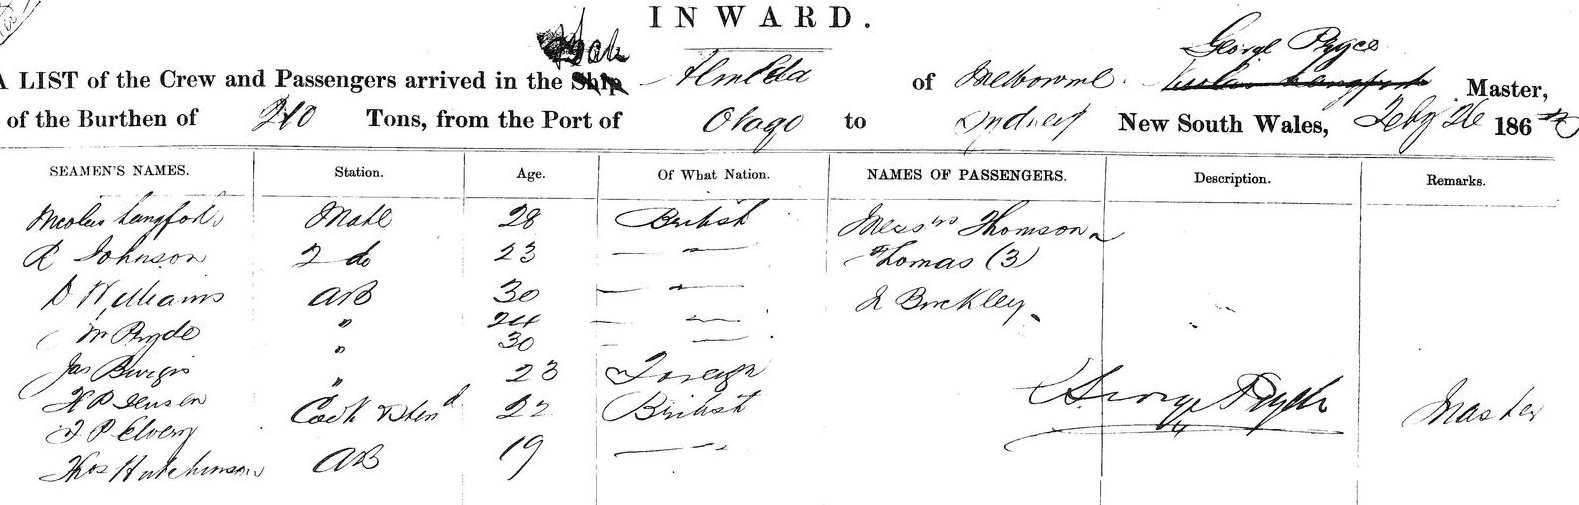 INWARD.
George Pryce
A LIST of the Crew and Passengers arrived in the Ship Almeda of Melbourne Master,
of the Burthen of 240 Tons, from the Port of Otago to Sydney New South Wales, Feby 26 186
SEAMEN'S NAMES. Station. Age. Of What Nation. NAMES OF PASSENGERS. Description. Remarks.
Nicolas Langford Mate 28 British Messrs Thomson
R Johnson 2 do 23 — " — Thomas (3)
D Williams AB 30 — " — J Buckley
Wm Pryde " 24 — " —
Jas 30 — " —
H P Jensen " 23 Foreign
J P Cook & Stewd 22 British George Master
Thos Hutchinson AB 19 — " —